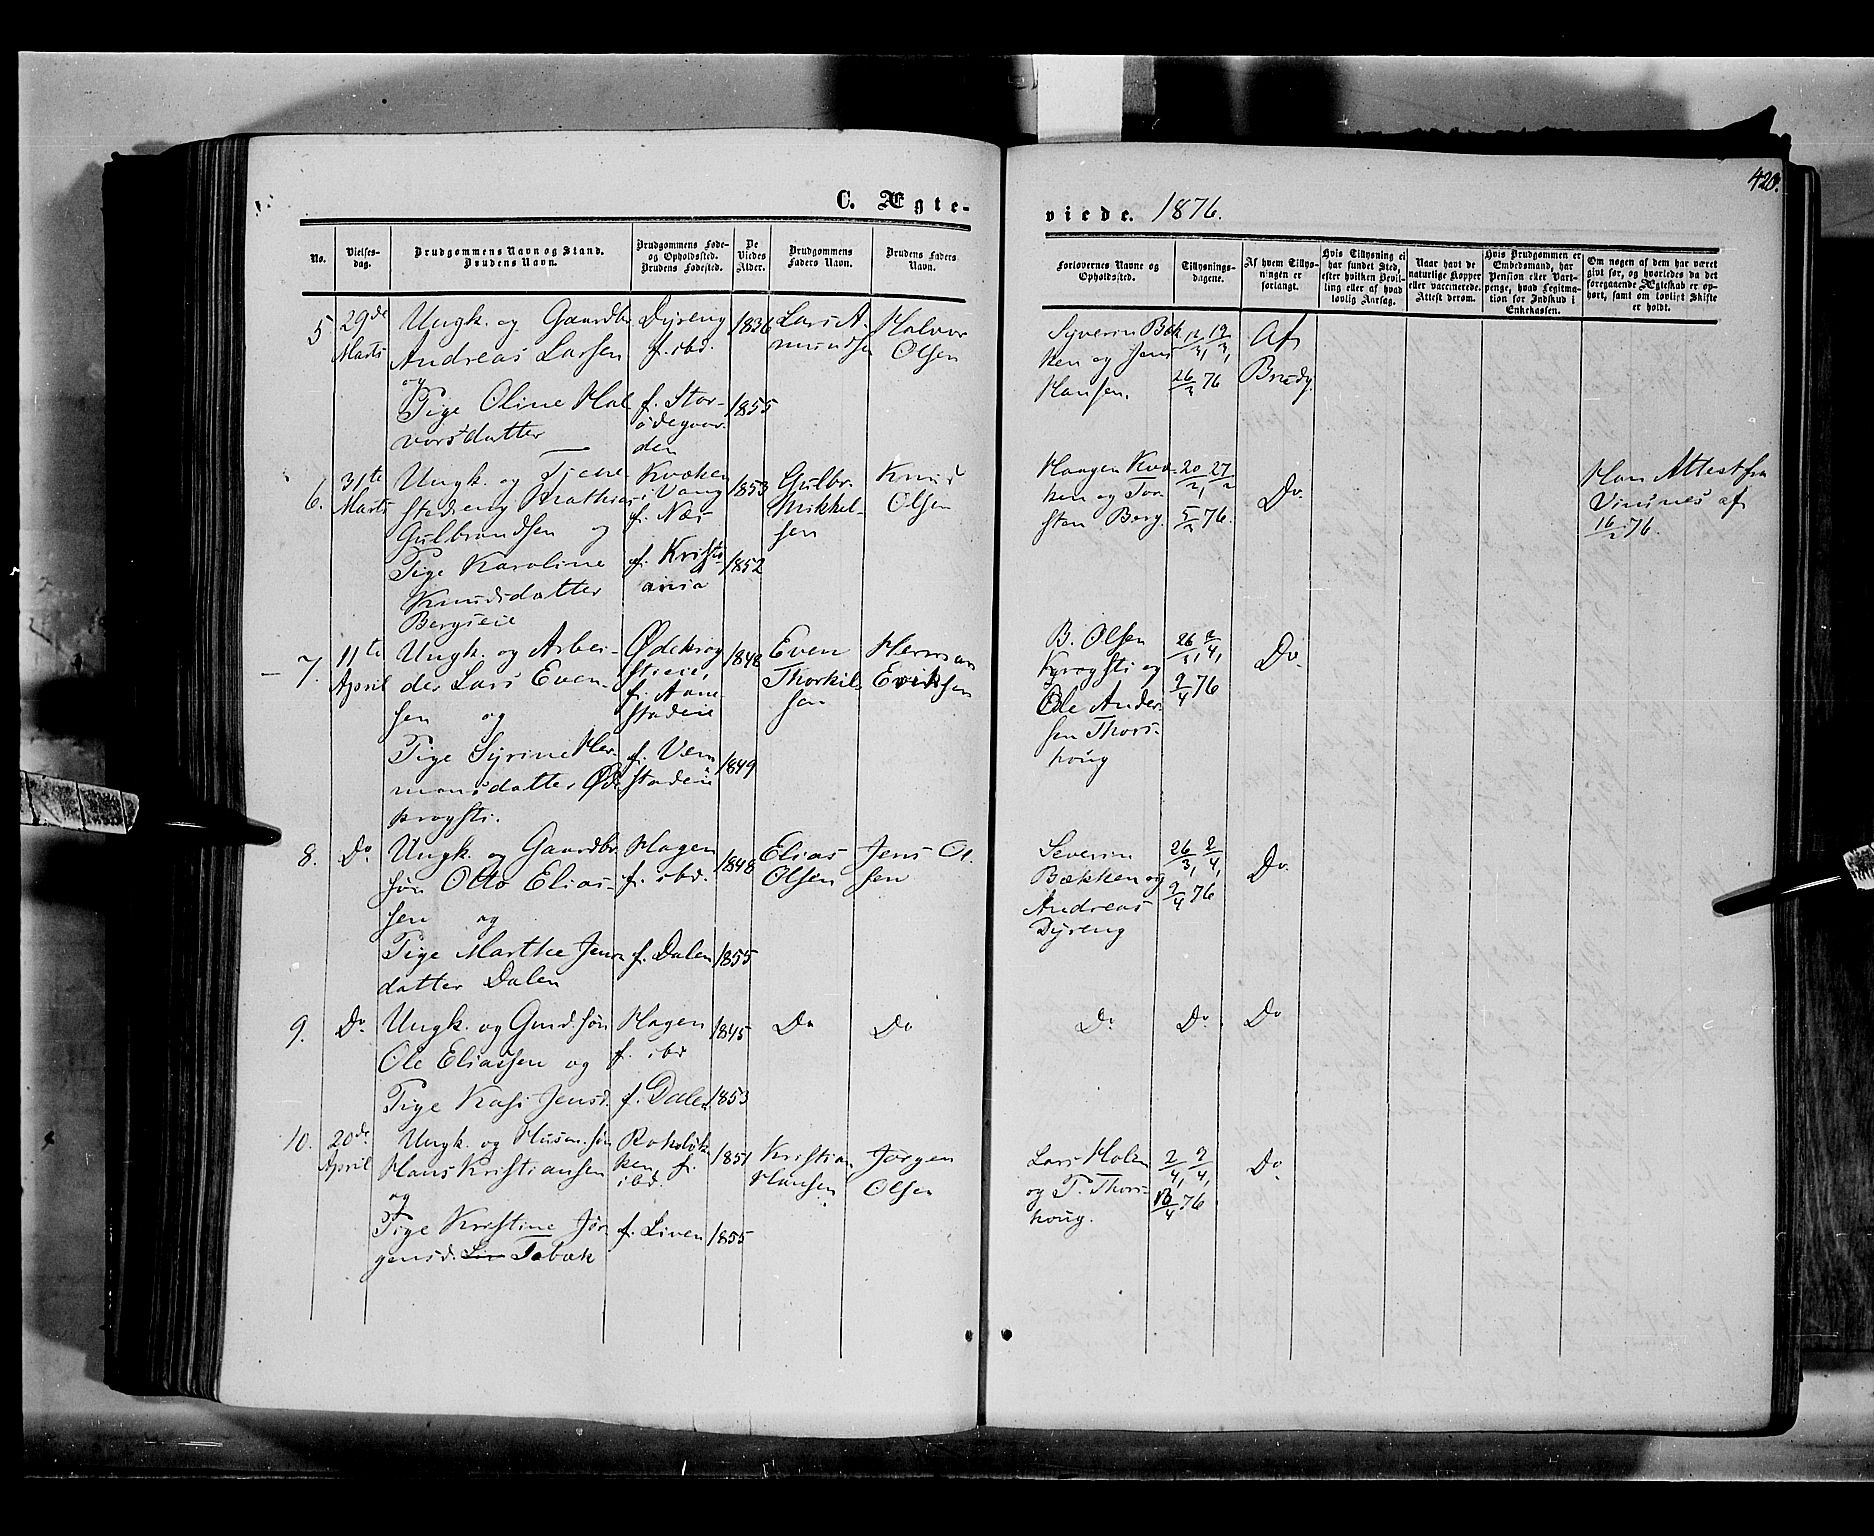 420.
C. Ægte-
viede. 1876.
No.
Vielses-
dag.
Brudgommens Navn og Stand.
Brudens Navn.
Brudgommens Føde-
og Opholdssted.
Brudens Fødested.
De
Viedes
Alder.
Brudgommens
Faders Navn.
Brudens Faders
Navn.
Forlovernes Navne og
Opholdssted.
Tillysnings-
dagene.
Af hvem Tillys-
ningen er
forlangt.
Hvis Tillysning ei
har fundet Sted,
efter hvilken Bevil-
ling eller af hvad
lovlig Aarsag.
Naar havt de
naturlige Kopper
eller vaccinerede.
Attest derom.
Hvis Brudgommen er
Embedsmand, har
Pension eller Vart-
penge, hvad Legitima-
tion for Indskud i
Enkekassen.
Om nogen af dem har været
givt før, og hvorledes da det
foregaaende Ægteskab er op-
hørt, samt om lovligt Skifte
er holdt.
5
29de
Marts
Ungk. og Gaardbr.
Andreas Larsen
og
Pige Oline Hal
vorsdatter
Dyreng
f. ibd.
f. Stor-
ødegaar
den
1836
1855
Lars A-
mundsen
Halvor
Olsen
Syverin Bæk
ken og Jens
Hansen.
12/3, 19/3,
26/3 76
Af
Brudg.
6.
31te
Marts
Ungk. og Tjene
stedreng Mathias
Gulbrandsen og
Pige Karoline
Knudsdatter
Bergseie
Kvæken
i Vang
f. Næs
f. Kristi
ania
1853
1852
Gulbr.
Mikkel-
sen
Knud
Olsen
Haagen Kvæ-
ken og Tor
sten Berg.
20/2, 27/2
5/3 76.
Do.
Han Attest fra
af
16/2 76.
7.
11te
April
Ungk. og Arbei-
der Lars Even-
sen og
Pige Syrine Her-
mansdatter Øde
krogsti.
Ødekrog
stieie,
f. Aane
stadeie
f. Væn
stadeie
1848
1849
Even
Thorkil-
sen
Herman
Eriksen
B. Olsen
Krogsti og
Ole Ander-
sen Thors-
houg
26/3, 2/4,
9/4 76
Do.
8.
Do.
Ungk. og Gaardbr.
søn Otto Elias-
sen og
Pige Marthe Jens
datter Dalen
Hagen
f. ibd.
f. Dalen
1848
1855
Elias
Olsen
Jens Ol-
sen
Severin
Bækken og
Andreas
Dyreng
26/3, 2/4,
9/4 76
Do.
9.
Do.
Ungk. og Gmd. søn
Ole Eliassen og
Pige Kasi Jensd.
Hagen
f. ibd
f. Dalen
1845
1853
Do
Do
Do.
Do.
Do
10.
20de
April
Ungk. og Husm. søn
Hans Kristiansen
og
Pige Kristine Jør-
gensd. Tobæk
f.
ibd.
f. Liven
1851
1855
Kristian
Hansen
Jørgen
Olsen
Lars Holen
og T. Thors-
houg.
2/4, 9/4,
76
Do